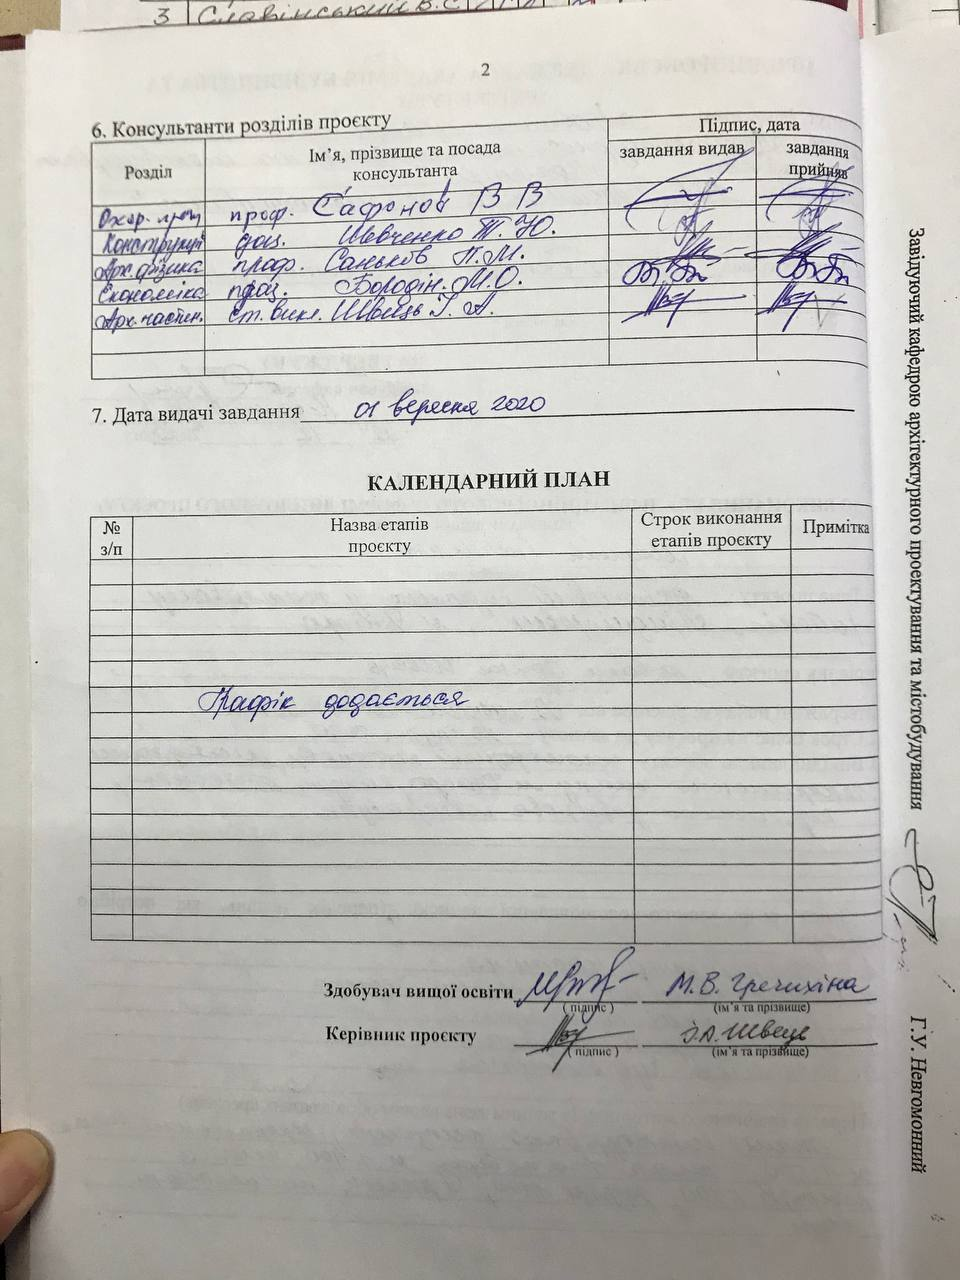 3 Славінський В.С.
2
6. Консультанти розділів проєкту
Розділ
Ім’я, прізвище та посада
консультанта
Підпис, дата
завдання видав
завдання
прийняв
Охор. праці проф. Сафонов В В
Конструкції доц. Шевченко Т. Ю.
Арх. фізика проф. Саньков П.М.
Економіка проф. Бородін. М.О.
Арх. частин. ст. викл. Швець І. А.
7. Дата видачі завдання 01 вересня 2020
КАЛЕНДАРНИЙ ПЛАН
№
з/п
Назва етапів
проєкту
Строк виконання
етапів проєкту
Примітка
Графік додається
Здобувач вищої освіти М.В. Гречихіна
( підпис ) (ім’я та прізвище)
Керівник проєкту І.А. Швець
( підпис ) (ім’я та прізвище)
Завідуючий кафедрою архітектурного проектування та містобудування Г.У. Невгомонний